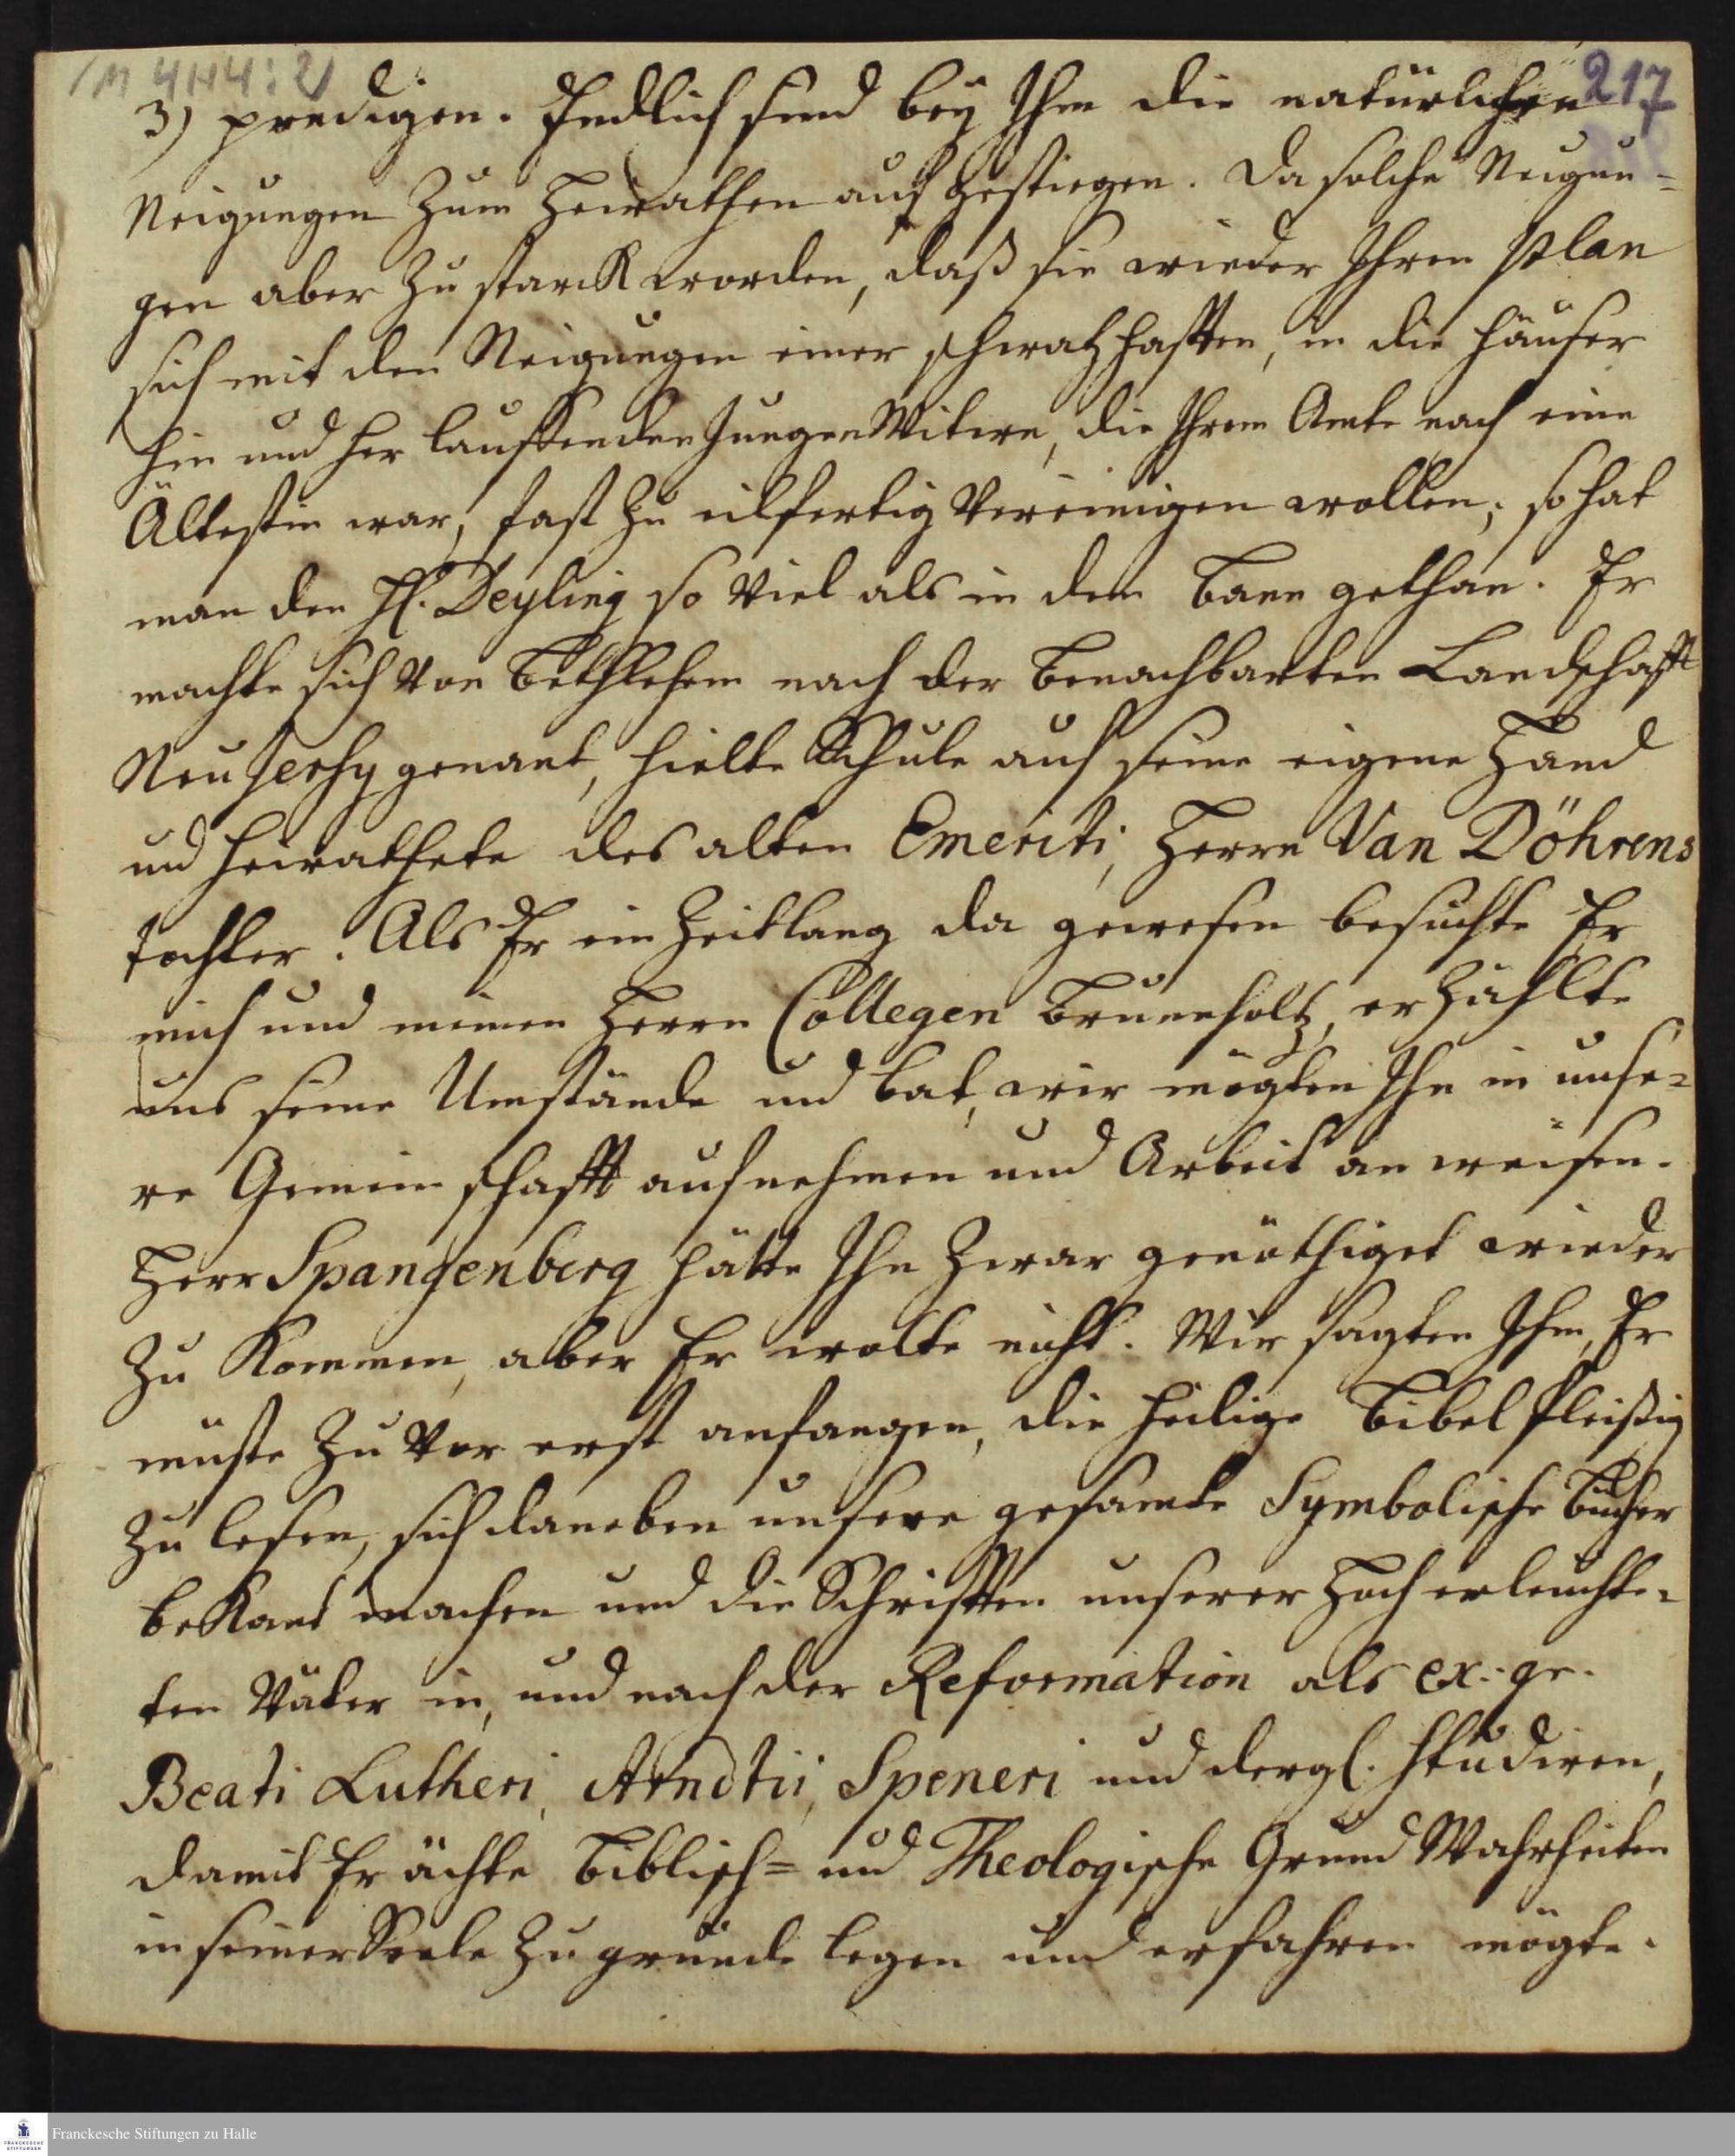 /M 4H4:2/
217
3) predigen. Endlich sind bey Ihm die natürlichen
Neigungen zum Heirathen aufgestiegen. Da solche Neigun=
gen aber zu starck worden, daß sie wieder Ihren Plan
sich mit den Neigungen einer schwatzhafften, in die Häuser
hin und her lauffenden jungen Witwe, die Ihrem Amte nach eine
Ältestin war, fast zu eilfertig vereinigen wollen; so hat
man den H. Deyling so viel als in den Bann gethan. Er
machte sich von Bethlehem nach der benachbarten Landschafft
Neu Jersey genant, hielte Schule auf seine eigene Hand
und heirathete des alten Emeriti, Herrn Van Döhrens
tochter. Als Er ein Zeitlang da gewesen besuchte Er
mich und meinen Herrn Collegen Brunnholtz, erzählte
uns seine Umstände und bat, wir mögten Ihn in unse=
re Gemeinschafft aufnehmen und Arbeit an weisen.
Herr Spangenberg hätte Ihn zwar genöthiget wieder
zu Kommen, aber Er wolte nicht. Wir sagten Ihm, Er
müste zu vor erst anfangen, die heilige Bibel fleißig
zu lesen, sich daneben unsere gesamte Symbolische Bücher
beKant machen und die Schrifften unserer Hoch erleuchte=
ten Väter in, und nach der Reformation als ex: gr.
Beati Lutheri, Arndtii, Speneri und dergl. studiren,
damit Er ächte Biblisch= und Theologische Grund Wahrheiten
in seiner Seele zu grunde legen und erfahren mögte.
Franckesche Stiftungen zu Halle
FRANCKESCHE
STIFTUNGEN